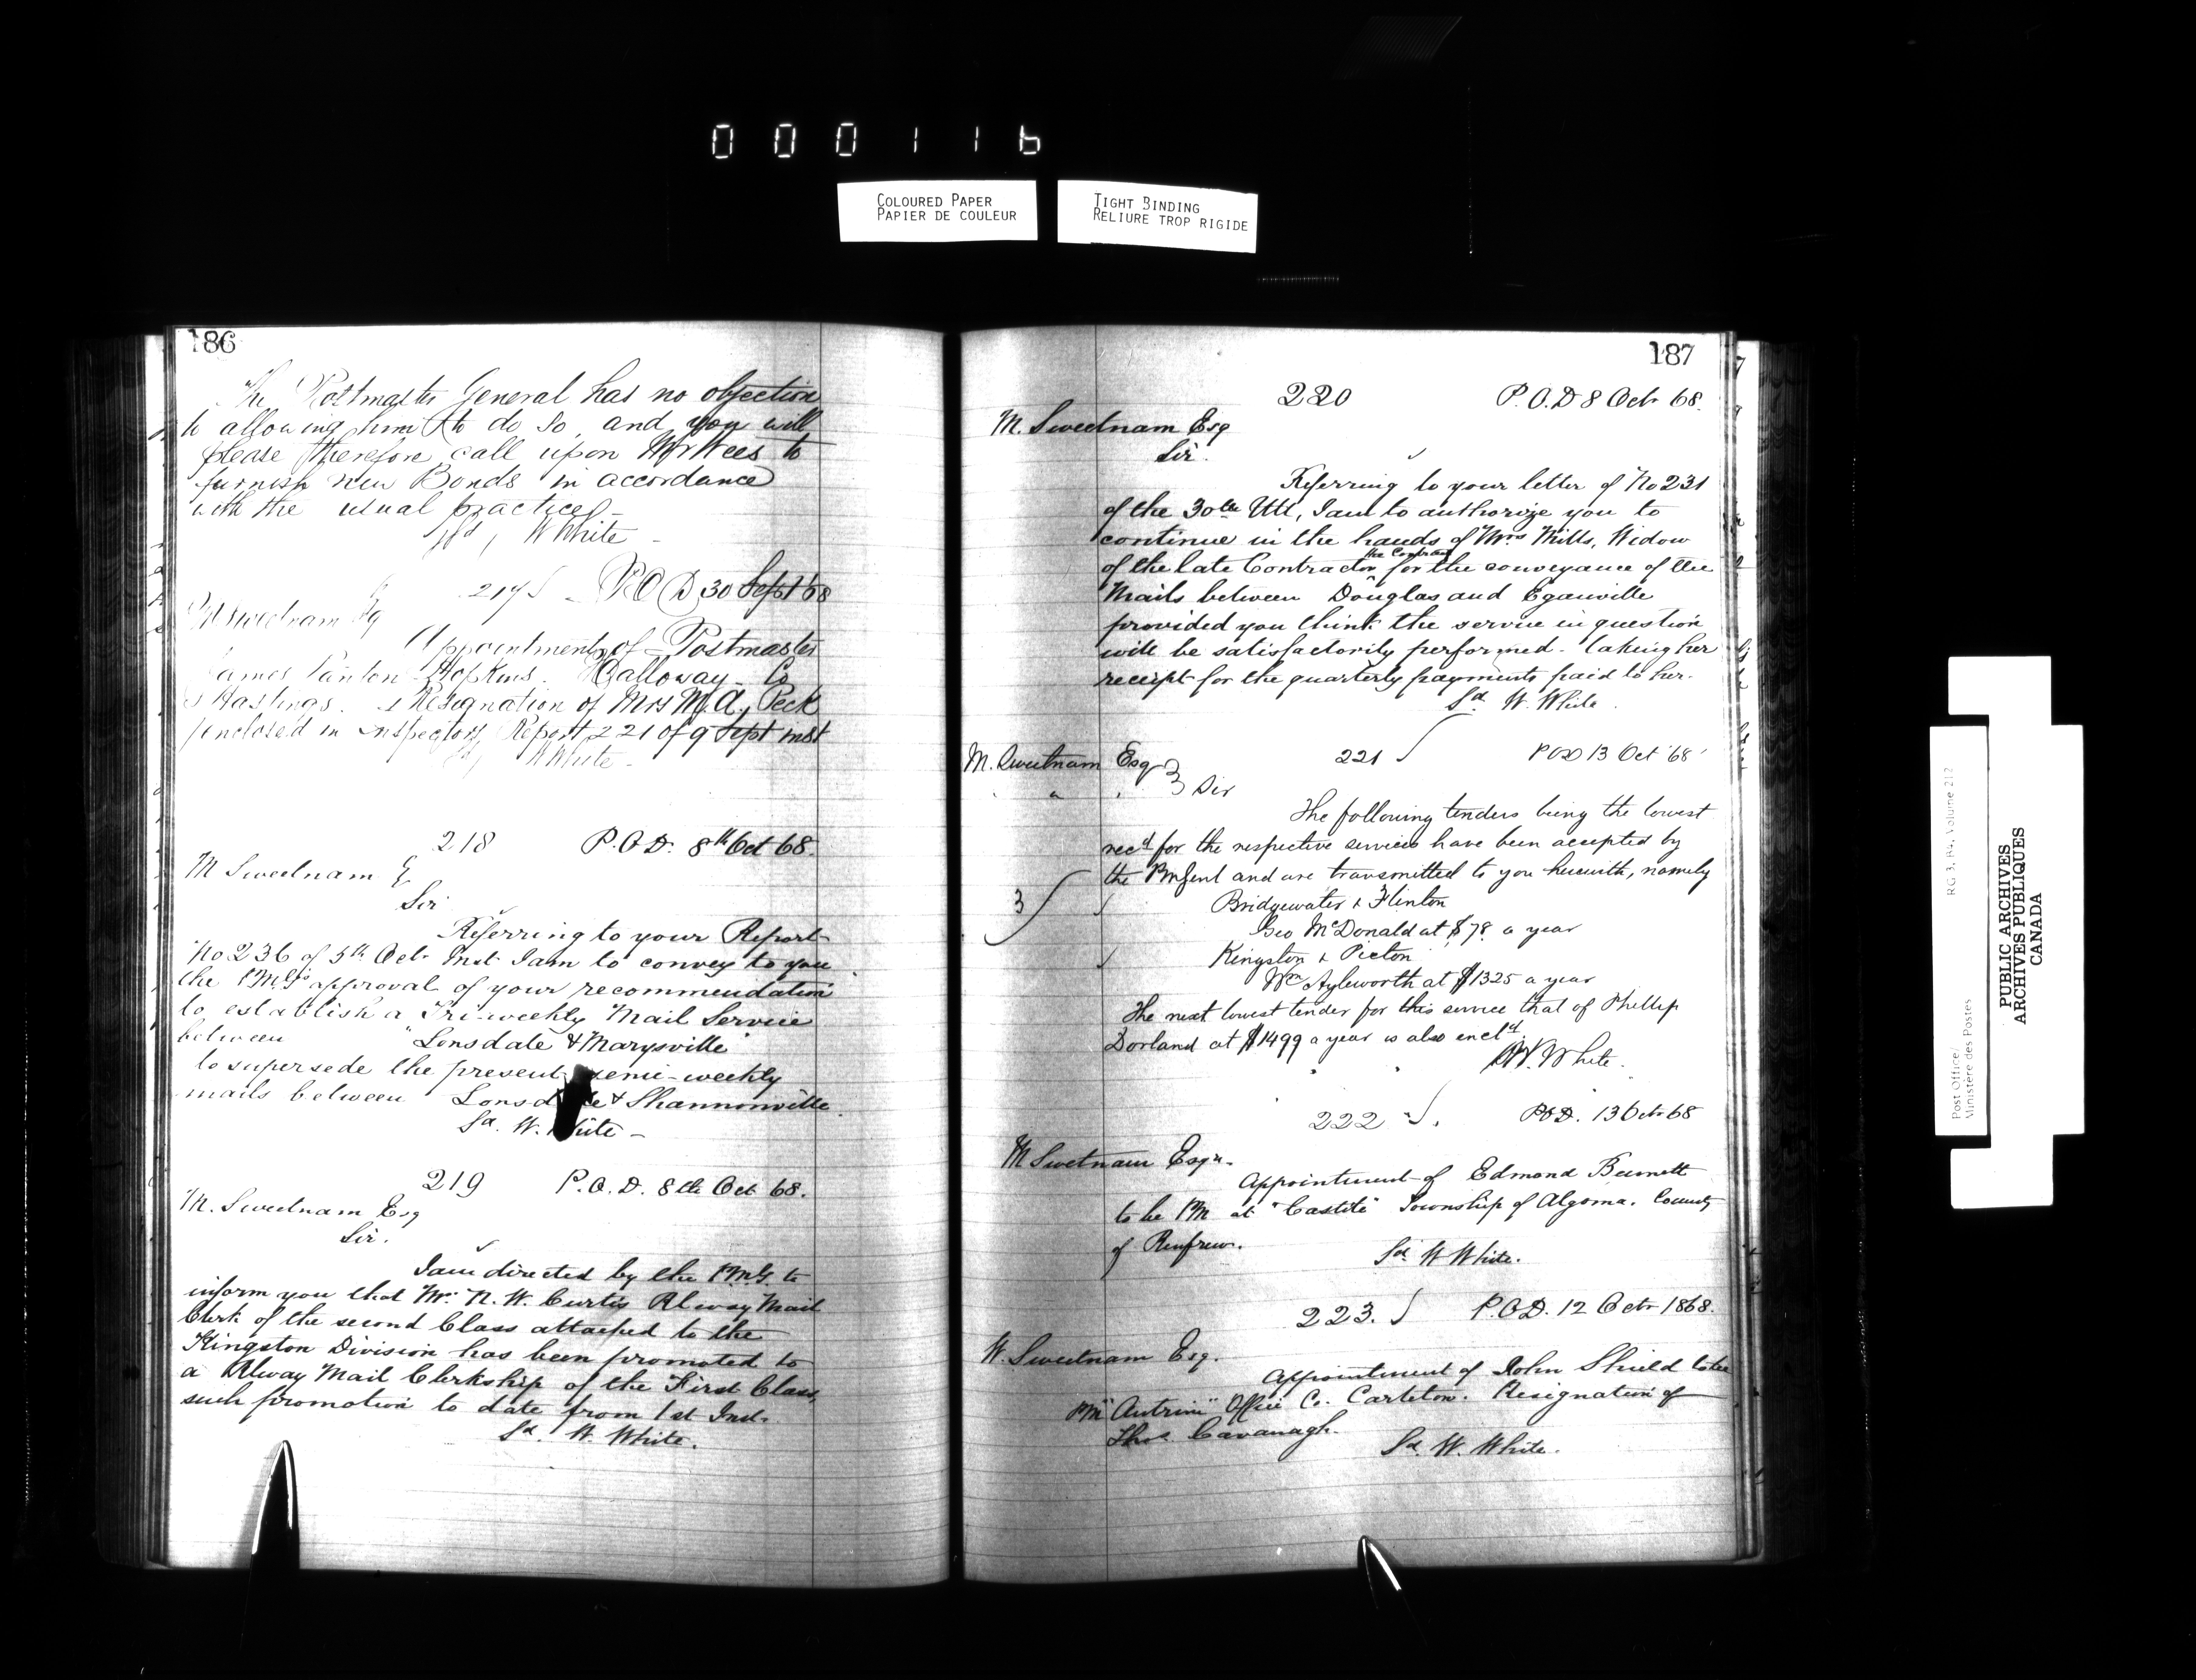 000116
COLOURED PAPER
PAPIER DE COULEUR
TIGHT BINDING
RELIURE TROP RIGIDE
186
The Postmaster General has no objection
to allowing him to do so, and you will
please therefore call upon to
furnish new Bonds in accordance
with the usual practice
Sd, W White -
217 - P O D 30 Sept 68
M Sweetnam Esq
Appointment of Postmaster
James Panton Hopkins. Calloway - Co
Hastings. Resignation of Mrs M. A. Peck
enclosed in Inspectors Report 221 of 9 Sept inst
Sd, W White -
218 P. O. D. 8th Oct 68.
M Sweetnam
Sir
Referring to your Report
No 236 of 5th Oct. Inst. I am to convey to you
the P.M.G's approval of your recommendation
to establish a Tri-weekly Mail Service
between "Lonsdale & Marysville"
to supersede the present semi-weekly
mails between Lonsdale & Shannonville.
Sd. W. White -
219 P. O. D. 8th Oct 68.
M. Sweetnam Esq
Sir.
I am directed by the P.M.G. to
inform you that Mr. N. W. Curtis Rlway Mail
Clerk of the second Class attached to the
Kingston Division has been promoted to
a Rlway Mail Clerkship of the First Class,
such promotion to date from 1st Inst.
Sd. W. White.
187
220 P. O. D 8 Oct 68.
M. Sweetnam Esq
Sir.
Referring to your letter of No 231
of the 30th Ult, I am to authorize you to
continue in the hands of Mrs Mills, Widow
of the late Contractor the Contract for the conveyance of the
Mails between Douglas and Eganville
provided you think the service in question
will be satisfactorily performed - taking her
receipt for the quarterly payments paid to her.
Sd W. White.
221 P O D 13 Oct '68
M. Sweetnam Esq
Sir
The following tenders being the lowest
recd for the respective services have been accepted by
the PMGenl and are transmitted to you herewith, namely
3
Bridgewater & Flinton
Geo McDonald at $78 a year
Kingston & Picton
Wm Aylesworth at $1325 a year
The next lowest tender for this service that of Phillip
Dorland at $1499 a year is also encld
W. White.
222 P.O.D. 13 Oct 68
M Swetnam Esqr.
Appointment of Edmond Bennett
to be PM at "Castile" Township of Algoma. County
of Renfrew.
Sd. W White.
223. P.O.D. 12 Oct 1868.
W. Sweetnam Esq.
Appointment of John Shield to be
PM "Antrim" Office Co. Carleton. Resignation of
Thos. Cavanagh.
Sd. W. White.
Post Office/
Ministère des Postes
RG 3, B4, Volume 212
PUBLIC ARCHIVES
ARCHIVES PUBLIQUES
CANADA